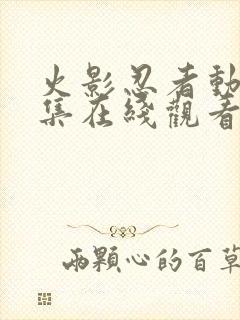 火影忍者動
集在綫觀看
兩顆心的百草